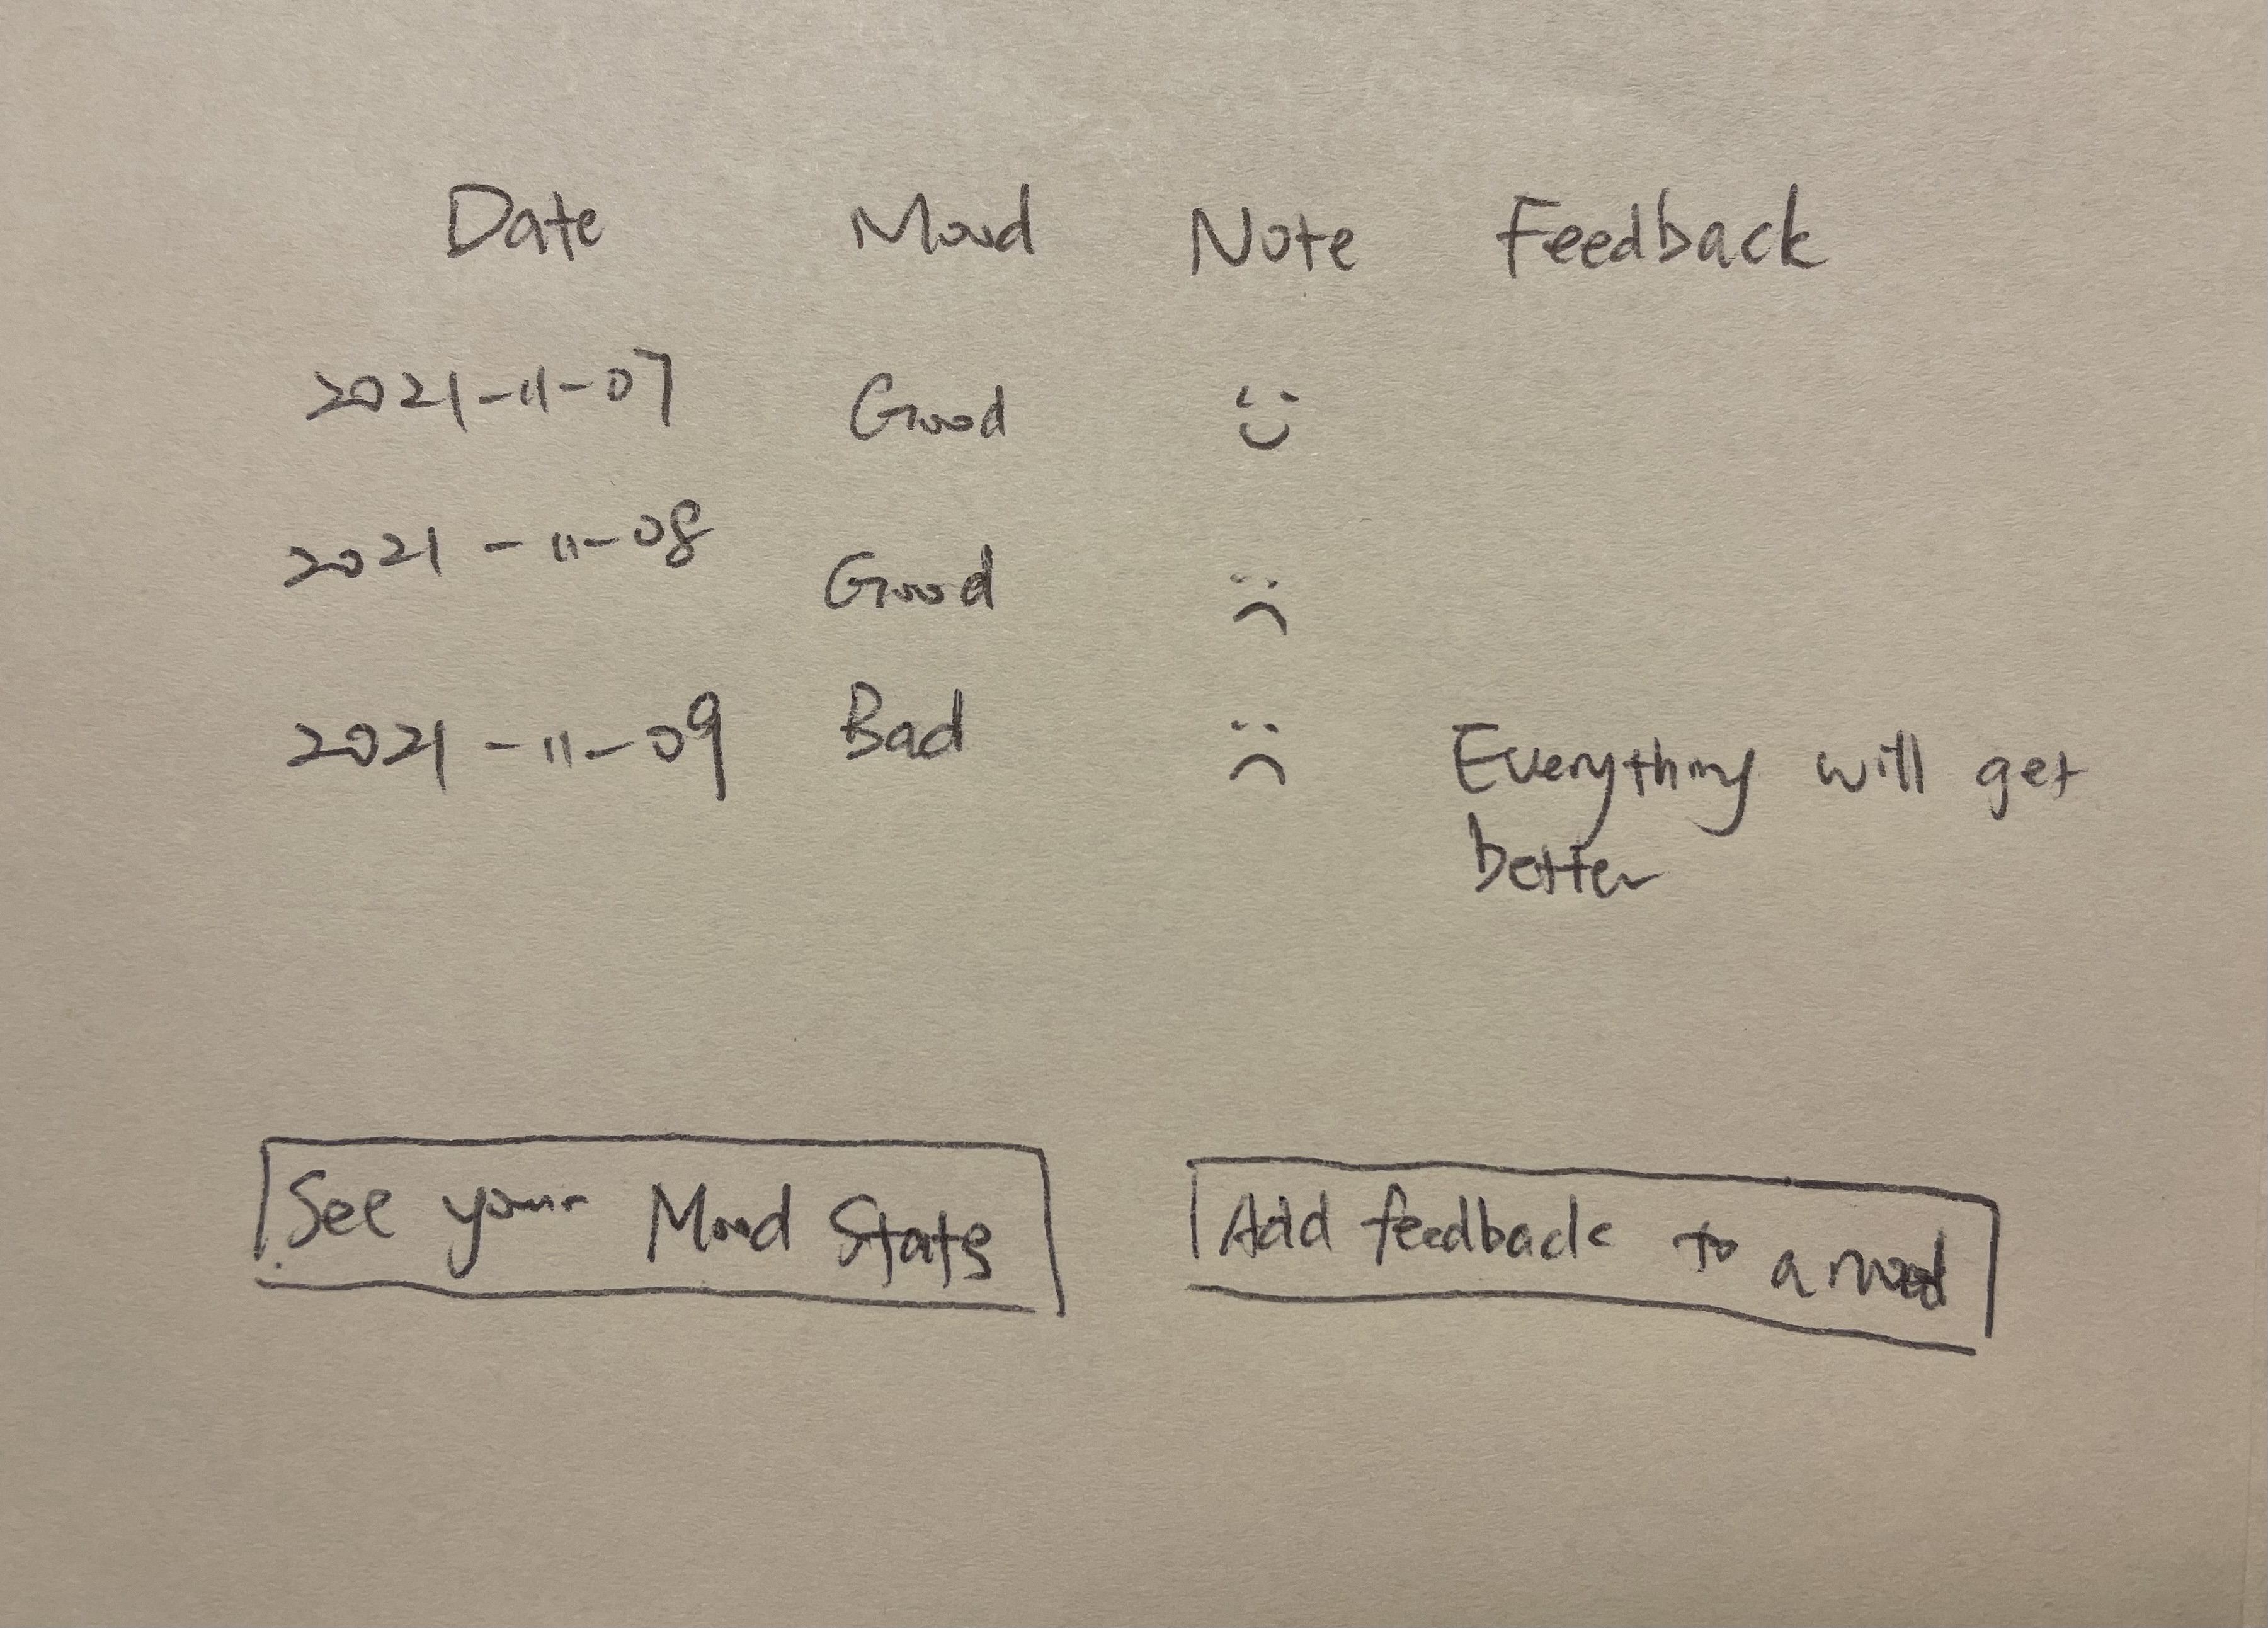 Date Mood Note Feedback
2021-11-07 Good :)
2021-11-08 Good :(
2021-11-09 Bad :( Everything will get
better
See your Mood Stats
Add feedback to a mood